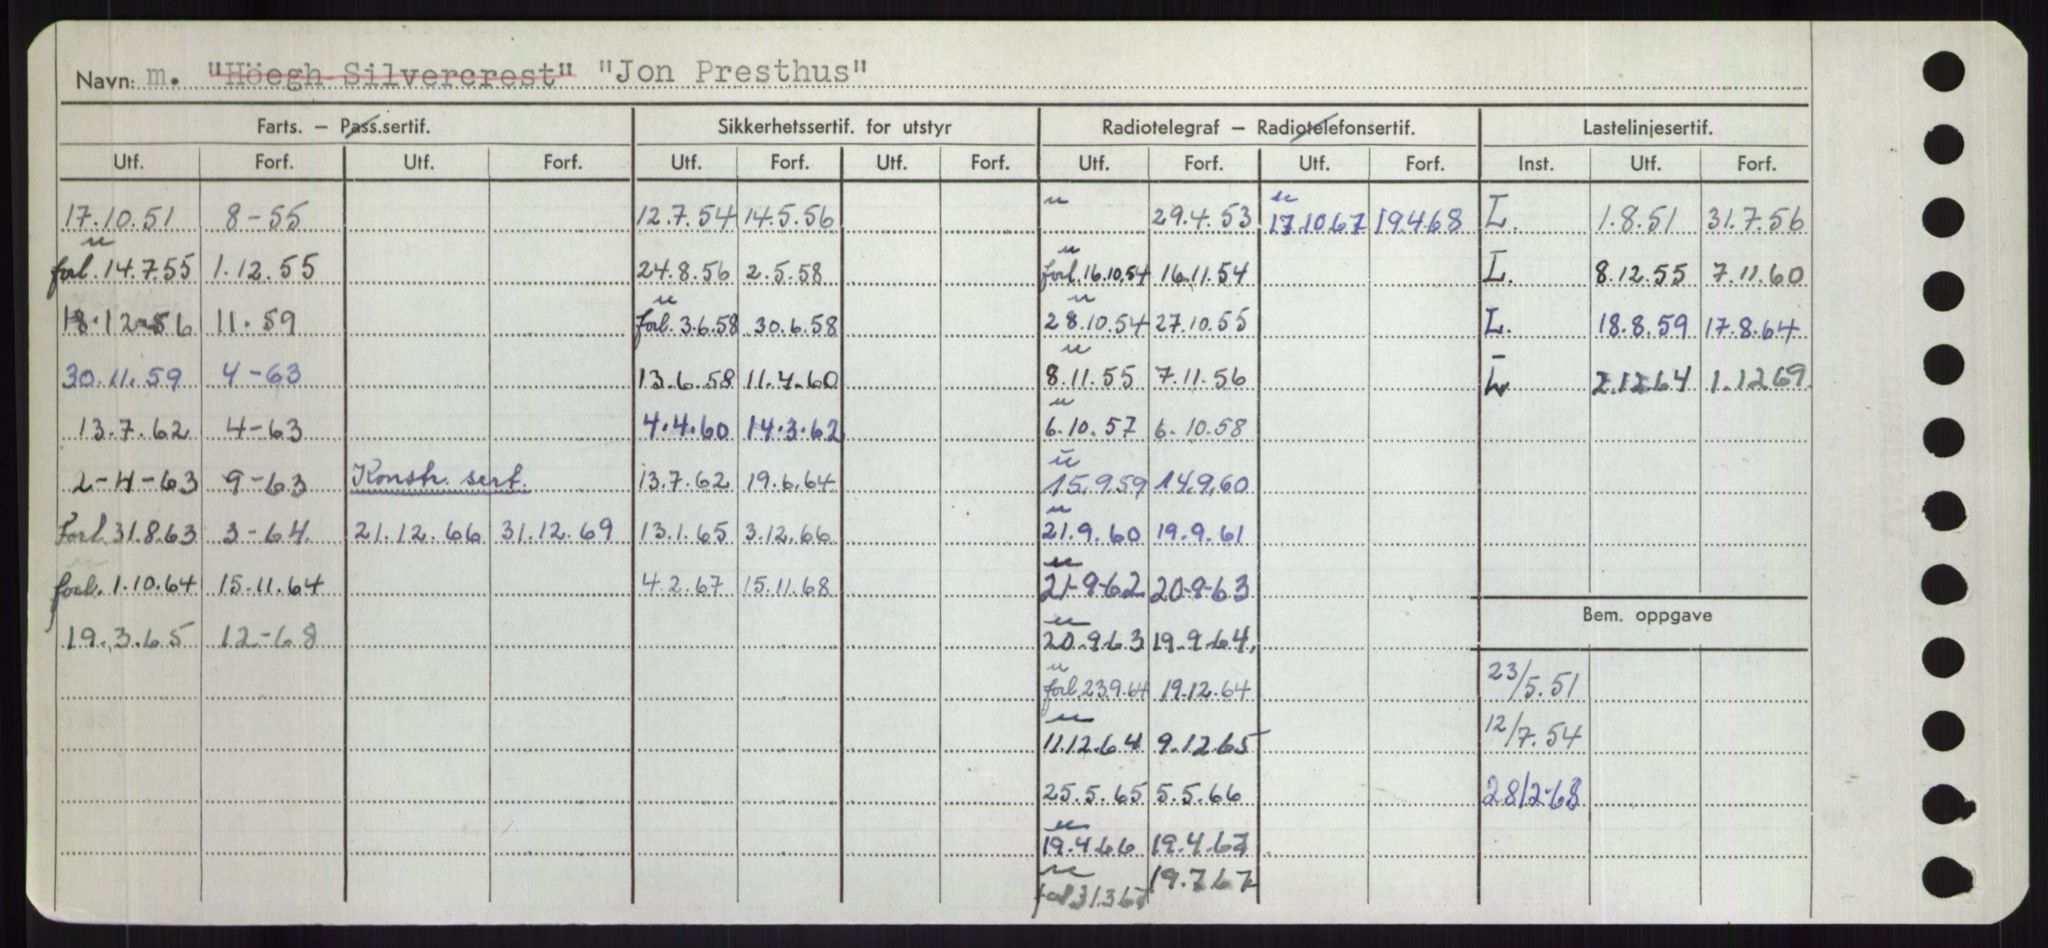 Navn: m. "Höegh Silvercrest" "Jon Presthus"
Farts. – Pass.sertif. Sikkerhetssertif. for utstyr Radiotelegraf – Radiotelefonsertif. Lastelinjesertif.
Utf. Forf. Utf. Forf. Utf. Forf. Utf. Forf. Utf. Forf. Utf. Forf. Inst. Utf. Forf.
17.10.51 8-55 12.7.54 14.5.56 u 29.4.53 u 17.10.67 19.4.68 L. 1.8.51 31.7.56
u forl. 14.7.55 1.12.55 24.8.56 2.5.58 u forl. 16.10.54 16.11.54 L. 8.12.55 7.11.60
18.12.56 11.59 u forl. 3.6.58 30.6.58 u 28.10.54 27.10.55 L. 18.8.59 17.8.64
30.11.59 4-63 13.6.58 11.4.60 u 8.11.55 7.11.56 L 2.12.64 1.12.69
13.7.62 4-63 4.4.60 14.3.62 u 6.10.57 6.10.58
2-4-63 9-63 Konstr. sert. 13.7.62 19.6.64 u 15.9.59 14.9.60
Forl. 31.8.63 3-64 21.12.66 31.12.69 13.1.65 3.12.66 u 21.9.60 19.9.61
forl. 1.10.64 15.11.64 4.2.67 15.11.68 u 21-9-62 20-9-63
Bem. oppgave
19.3.65 12-68 u 20.9.63 19.9.64.
u forl. 23.9.64 19.12.64 23/5.51
u 11.12.64 9.12.65 12/7.54
25.5.65 5.5.66 28/2-68
u 19.4.66 19.4.67
u forl 31.3.67 19.7.67